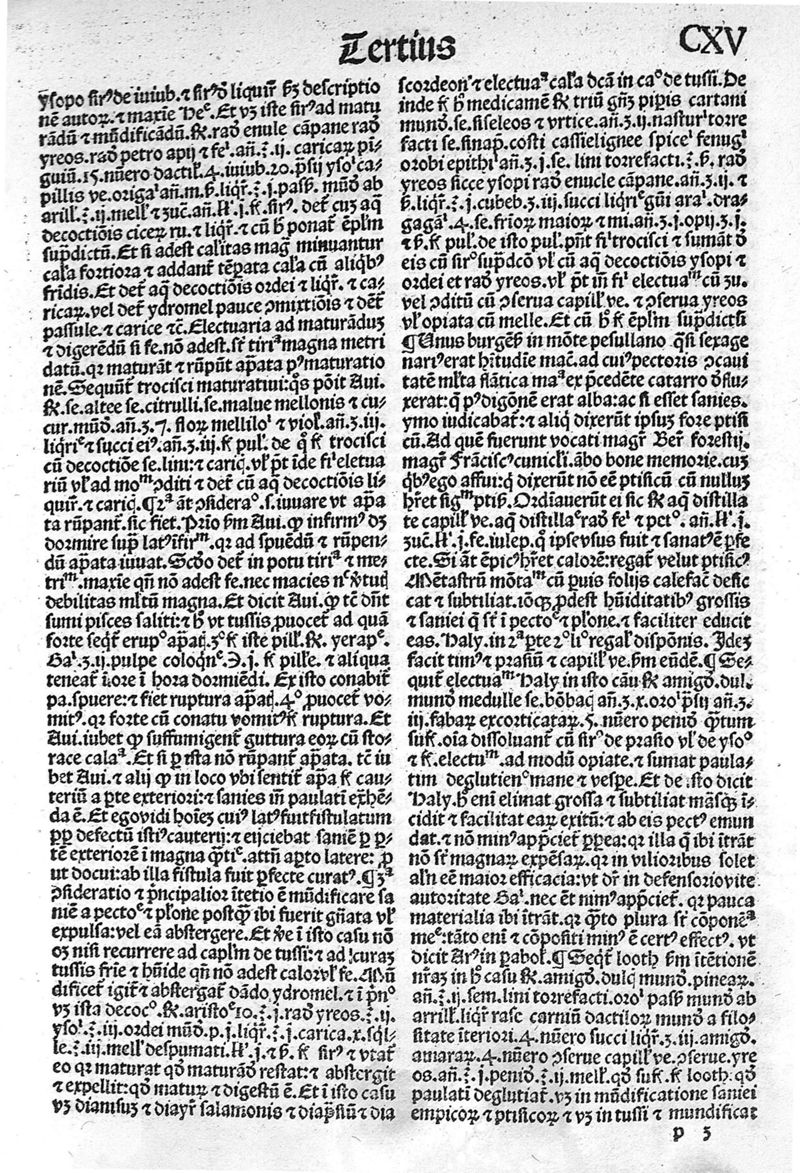 Tertius
CXV
ysopo sirꝰ de iuiub. ⁊ sirꝰ ꝺ̄ liquir̄ ẜm descriptio
nē autoꝝ. ⁊ maxīe Heᵉ. Et vꝫ iste sirꝰ ad matu
rādū ⁊ mūdificādū. ℞. rad̄ enule cāpane rad̄
yreos. rad̄ petro apij ⁊ feᶥ. añ.℥.ij. caricaꝝ pi-
guiū.15. nūero dactil.4. iuiub.20. p̄sij ysoᶥ ca-
pillis ve. origaᶥ añ.m.ẜ. liqr̄.℥.j. pasẜ. mūd̄ ab
arill̄.℥.ij. mell̄ ⁊ ʒuc̄. añ.
decoctiōis cicer̄ ru. ⁊ liqr̄. ⁊ cū ħ ponat̄ ēpl̄m
sup̄dictū. Et si adest caliᵗas mag̃ minuantur
calᵃ fortiora ⁊ addant̄ tēpata calᵃ cū aliqb̄ꝰ
fr̄idis. Et det̄ aq̄ decoctiōis ordei ⁊ liqr̄. ⁊ ca-
ricaꝝ. vel det̄ ydromel pauce ꝯmixtiōis ⁊ det̄
passule. ⁊ carice ⁊c̄. Electuaria ad maturādūꝫ
⁊ digerēdū si fe. nō adest. st̄ tiriᵃ magna metri
datū. qr maturāt ⁊ rūpūt ap̄ata pꝰ maturatio
nē. Sequūt̄ trocisci maturatiui: q̄s pōit Aui.
℞. se. altee se. citrulli. se. malue mellonis ⁊ cu-
cur. mūd̄. añ.ʒ.7. floꝝ melliloᶥ ⁊ viol̄. añ.ʒ.iij.
liqr̄ie ⁊ succi eiꝰ. añ.ʒ.iij. f̄t pul̄. de q̄ f̄t trocisci
cū decoctiōe se. lini: ⁊ cariq̄. vl̄ pt̄ īde fi̇ri eletua
riū vl̄ ad moᵐ ꝯditi ⁊ det̄ cū aq̄ decoctiōis li-
quir̄. ⁊ cariq̄. ¶2ᵃ āt ꝯsideraᵒ. s. iuuare vt ap̄a
ta rūpant̄. sic fiet. Pr̄io ẜm Aui. ꝙ infirmꝰ dꝫ
dormire sup̄ latꝰ īfirᵐ. qr ad spuēdū ⁊ rūpen-
dū ap̄ata iuuat. Scd̄o det̄ in potu tiriᵃ ⁊ me-
triᵐ. maxīe qn̄ nō adest fe. nec macies
debilitas ml̄tū magna. Et dicit Aui. ꝙ tē dn̄t
sumi pisces saliti: ⁊ ħ vt tussis ꝓuocet̄ ad quā
forte seqt̄ erupᵒ ap̄atꝭ. 3ᵒ f̄t iste pill̄. ℞. yerape.
Gaᶥ.ʒ.ij. pulpe coloqn̄e.℈.j. f̄t pill̄e. ⁊ aliqua
teneat̄ ī ore ī hora dormiēdi. Ex isto conabit̄
pa. spuere: ⁊ fiet ruptura ap̄atꝭ. 4ᵒ ꝓuocet̄ vo-
mitꝰ. qr forte cū conatu vomitꝰ f̄t ruptura. Et
Aui. iubet ꝙ suffumigent̄ guttura eoꝝ cū sto-
race calaᵃ. Et si ꝑ ista nō rūpant̄ ap̄ata. tē iu
bet Aui. ⁊ alij ꝙ in loco vbi sentit̄ ap̄a f̄t cau-
teriū a ꝑte exteriori: ⁊ sanies īm paulati exhē-
da ē. Et ego vidi hoīeꝫ cuiꝰ latꝰ fuit fistulatum
ꝓpꝉ defectū istiꝰ cauterij: ⁊ eijciebat saniē ꝑ ꝑ-
tē exteriorē ī magna q̄ntiᵉ. attn̄ apto latere: ꝓ
ut docui: ab illa fistula fuit ꝑfecte curatꝰ. ¶3ᵃ
ꝯsideratio ⁊ pr̄ncipalior ītētio ē mūdificare sa
niē a pectoᵉ ⁊ pl̄one postꝙ̄ ibi fuerit gn̄ata vl̄
expulsa: vel eā abstergere. Et ī isto casu nō
oꝫ nisi recurrere ad capl̄m de tussi: ⁊ ad curaꝫ
tussis fr̄ie ⁊ hūide qn̄ nō adest calor vl̄ fe. Mū
dificet̄ igit̄ ⁊ abstergat̄ dādo ydromel. ⁊ ī pn̄ᵒ
vꝫ ista decocᵒ. ℞. aristoᵉ 10.℥.j. rad̄ yreos.℥.ij.
ysoᶥ.℥.iij. ordei mūd̄. p. j. liqr̄.℥.j. carica.x. sqil-
le.℥.iij. mell̄ despumati. ⁊ ẜ. f̄t sirꝰ ⁊ vtat̄
eo qr maturat qd̄ maturādū restat: ⁊ abstergit
⁊ expellit: qd̄ matuꝝ ⁊ digestū ē. Et ī isto casu
vꝫ diamisuꝫ ⁊ diayr̄ salamonis ⁊ diap̄siū ⁊ dia
scordeon̄ ⁊ electuaᵃ calᵃ dc̄a in caᵒ de tussi. De
inde f̄t ħ medicamē ℞ triū gn̄ꝫ piꝑis cartani
mund̄. se. siseleos ⁊ vrtice. añ.ʒ.ij. nasturᶥ torre
facti se. sinap̄. costi cassielignee spiceᶥ fenug̃
orobi epithiᶥ añ.ʒ.j. se. lini torrefacti.℥.ẜ. rad̄
yreos sicce ysopi rad̄ enucle cāpane. añ.ʒ.ij. ⁊
ẜ. liqr̄.ℨ.j. cubeb.ʒ.iij. succi liqr̄ie gūi araᶥ. dra-
gagāᶥ.4. se. fr̄ioꝝ maioꝝ ⁊ mi. añ.ʒ.j. opij.ʒ.j.
⁊ ẜ. f̄t pul̄. de isto pul̄. pn̄t fi̇ri trocisci ⁊ sumāt̄ ꝺ̄
eis cū sirᵒ sup̄dc̄o vl̄ cū aq̄ decoctiōis ysopi ⁊
ordei et rad̄ yreos. vl̄ pt̄ īn fi̇ri electuaᵐ cū zu.
vel ꝯditū cū ꝯserua capill̄ ve. ⁊ ꝯserua yreos
vl̄ opiata cū melle. Et cū ħ f̄t ēpl̄m sup̄dict̄ꝫ
¶Unus burgēs̄ in mōte pesullano q̄si sexage
nariꝰ erat hītudīe mac̄. ad cuiꝰ pectoris ꝯcaui
tatē ml̄ta flātica maᵃ ex p̄cedēte catarro ꝺ̄flu-
xerat: q̄ pꝰ digonē erat alba: ac si esset sanies.
ymo iudicabat̄: ⁊ aliq̄ dixerūt ipsuꝫ fore ptisi
cū. Ad quē fuerunt vocati magr̄ Ber̄ forestij.
magr̄ Frāciscꝰ cunicli. ābo bone memorie. cuꝫ
qb̄ꝰ ego affui: q̄ dixerūt nō eē ptisicū cū nulluꝫ
hr̄et sigᵐ ptisꝭ. Ordīauerūt ei sic ℞ aq̄ distilla
te capill̄ ve. aq̄ distillaᵉ rad̄ feᶥ ⁊ petᵒ. añ.
ʒuc̄. f̄t iulep. q ipse vsus fuit ⁊ sanatꝰ ē ꝑfe
cte. Si āt ēpicꝰ hr̄et calorē: regat̄ velut ptisicꝰ
Mētastrū mōtaᵐ cū puis folijs calefac̄ desic
cat ⁊ subtiliat. ioꝙꝫ ꝓdest hūiditatibꝰ grossis
⁊ saniei q̄ st̄ ī pectoᵉ ⁊ pl̄one. ⁊ faciliter educit
eas. Haly. in 2ᵃ ꝑte 2ᵒ liᵒ regal̄ dispōnis. Ideꝫ
facit timꝰ ⁊ prasiū ⁊ capill̄ ve. ẜm eūdē. ¶Se-
quit̄ electuaᵐ Haly in isto cāu ℞ amigd̄. dul.
mund̄o medulle se. bōbacꝭ añ.ʒ.x. oroᶥ p̄sij añ.ʒ.
iij. fabaꝝ excorticataꝝ.5. nūero penid̄ q̄ntum
suf̄. oīa dissoluant̄ cū sirᵒ de prasio vl̄ de ysoᵒ
⁊ f̄t electuᵐ. ad modū opiate. ⁊ sumat paula-
tim deglutienᵒ mane ⁊ vesꝑe. Et de isto dicit
Haly. ħ enī elimat grossa ⁊ subtiliat
cidit ⁊ facilitat eaꝝ exitū: ⁊ ab eis pectꝰ emun
dat. ⁊ nō minꝰ app̄ciet̄ ꝓpꝑea: qr illa q̄ ibi ītrāt
nō st̄ magnaꝝ expēsaꝝ. qr in vilioribus solet
aln̄ eē maior efficacia: vt dr̄ in defensorio vite
autoritate Gaᶥ. nec ēt nimꝰ app̄ciet̄. qr pauca
materialia ibi ītrāt. qr q̄nto plura st̄ cōponēᵃ
meᵉ: tāto enī ⁊ cōpositi minꝰ ē certꝰ effectꝰ. vt
dicit Arꝰ in parabol̄. ¶Seqt̄ looth ẜm ītētionē
nr̄aꝫ in ħ casu ℞. amigd̄. dulciꝫ mund̄. pineaꝝ.
añ.℥.ij. sem. lini torrefacti. oroᶥ. pasẜ mund̄ ab
arrill̄. liqr̄. rasc̄ carniū dactiloꝝ mund̄ a filo-
sitate īteriori.4. nūero succi liqr̄.ʒ.iij. amigd̄.
amaraꝝ.4. nūero ꝯserue capill̄ ve. ꝯserue yre
os. añ.ℨ.j. penid̄.ℨ.ij. mell̄. qd̄ suf̄. f̄t looth. qd̄
paulati deglutiat̄. vꝫ in mūdificatione saniei
empicoꝝ ⁊ ptisicoꝝ ⁊ vꝫ in tussi ⁊ mundificat
p 3